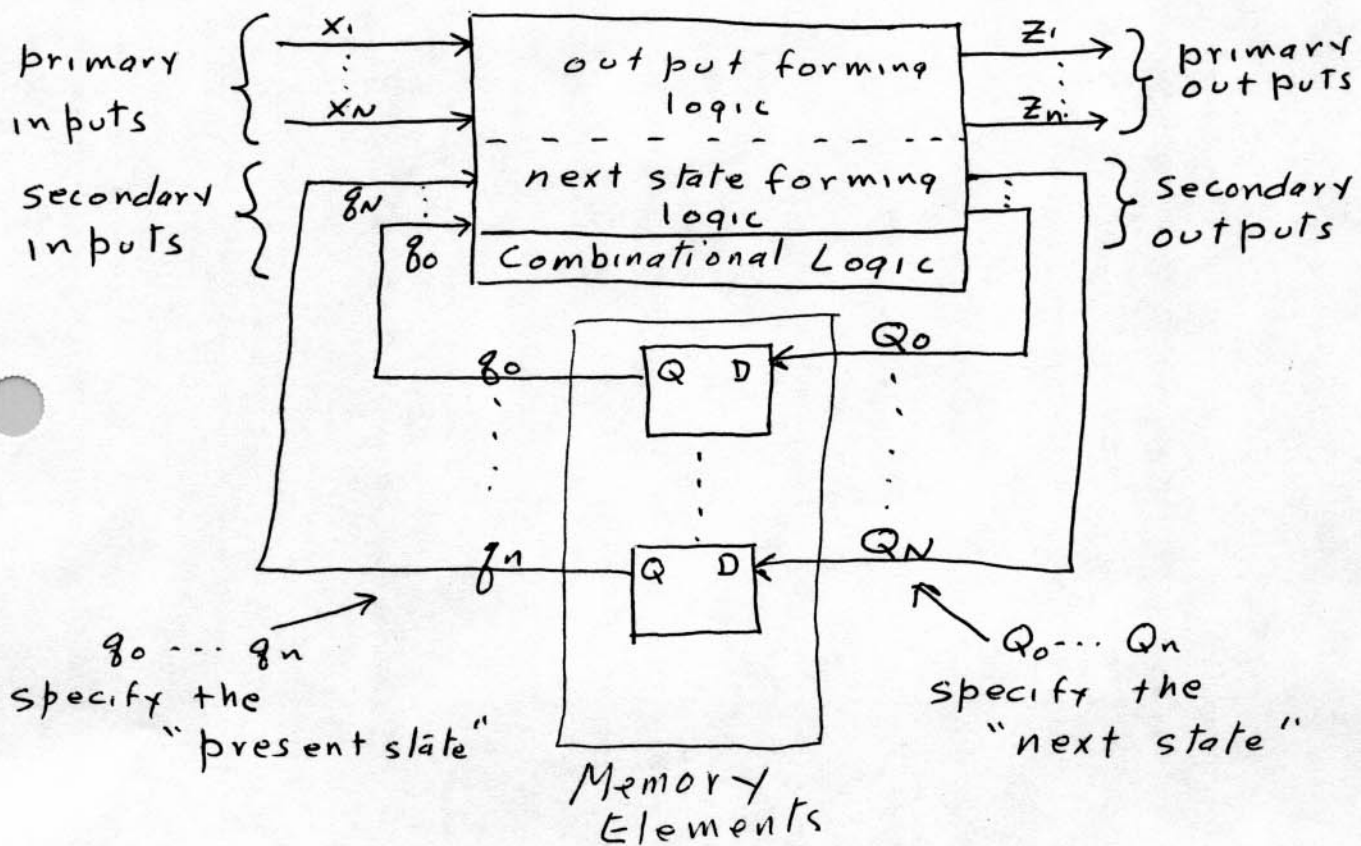 primary
inputs
x1
xN
out put forming
logic
z1
zn
primary
out puts
secondary
inputs
qN
q0
next state forming
logic
Combinational Logic
secondary
out puts
q0
Q D
Q0
qn
Q D
QN
q0 ---- qn
specify the
"present state"
Q0 ---- Qn
specify the
"next state"
Memory
Elements